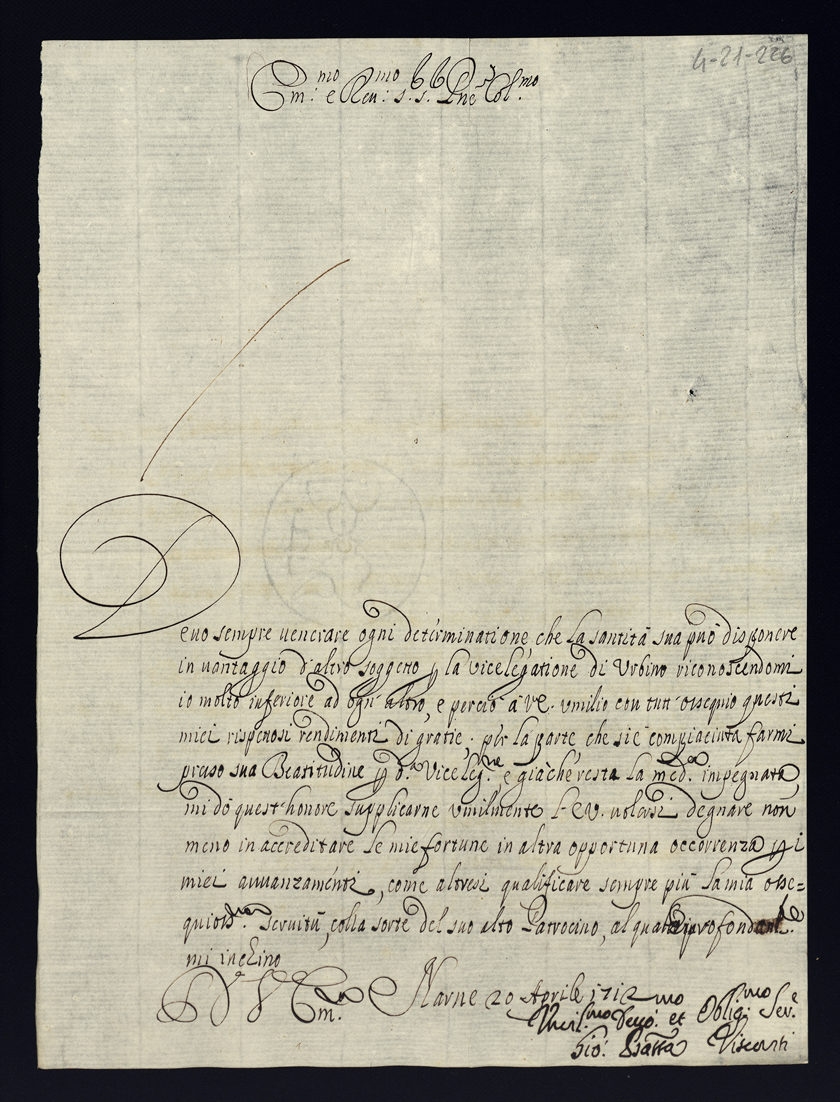 4-21-226
Em:mo e Reu:mo S.r S.r Pne Col.mo
Deuo sempre uenerare ogni determinatione che la santità sua può disponere
in uantaggio d'altro soggetto p la vicelegatione di Urbino riconoscendomi
io molto inferiore ad ogn'altro, e perciò à V.E. vmilio con tutt'ossequio questi
miei rispetosi rendimenti di gratie. per la parte che si è compiaciuta farmi
presso sua Beatitudine p d.a Viceleg.ne e già che resta la med.a impegnata,
mi dò quest'honore supplicarne vmilmente l'E.V. uolersi degnare non
meno in accreditare le mie fortune in altra opportuna occorrenza p i
miei auuanzamenti, come altresi qualificare sempre più la mia osse=
quios.ma seruitù, colla sorte del suo alto Patrocino, al quale profondam.te
mi inchino
D V. Em.za Narne 20 Aprile 1712
Vmil.mo Deuo: et Oblig:mo Ser.e
Gio: Batta Visconti